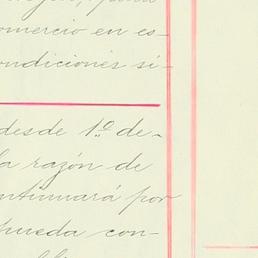 comercio en es-
condiciones si-
desde 1.º de-
la razón de
continuará por
pueda con-